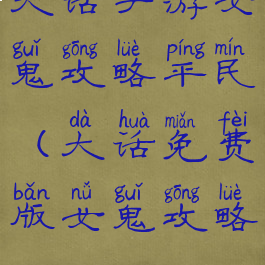 guǐ gōng lüè píng mín
鬼攻略平民
dà huà miǎn fèi
（大话免费
bǎn nǚ guǐ gōng lüè
版女鬼攻略